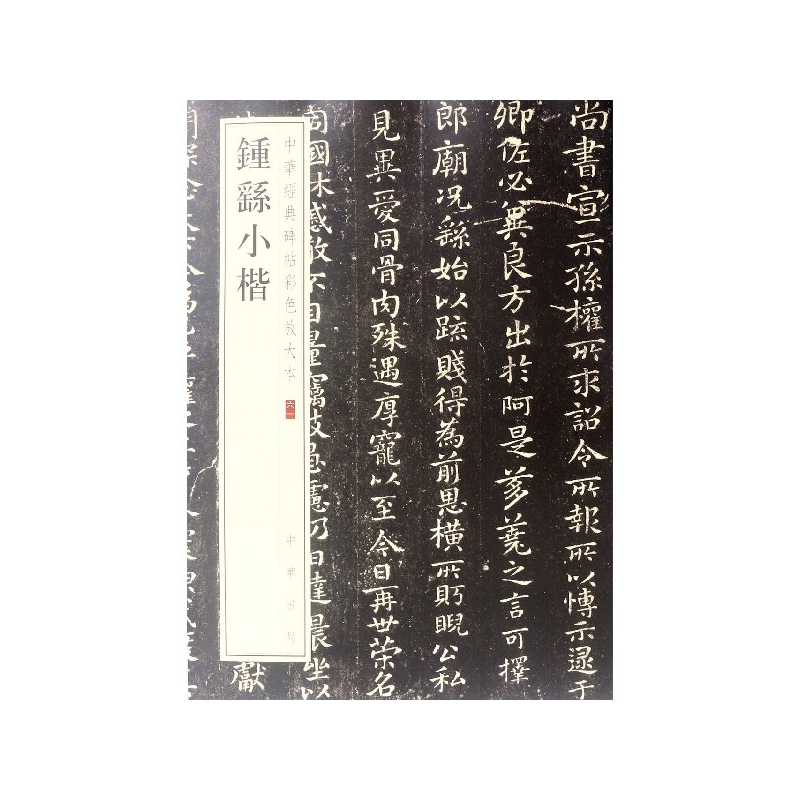 尚書宣示孫權所求詔令所報所以博示逮于
卿佐必冀良方出於阿是芻蕘之言可擇
郎廟況繇始以疏賤得為前恩橫所眄睨公私
見異愛同骨肉殊遇厚寵以至今日再世榮名
同國休慼敢不自量竊致愚慮仍日達晨坐以
獻
中華經典碑帖彩色放大本
六一
中華書局
鍾繇小楷